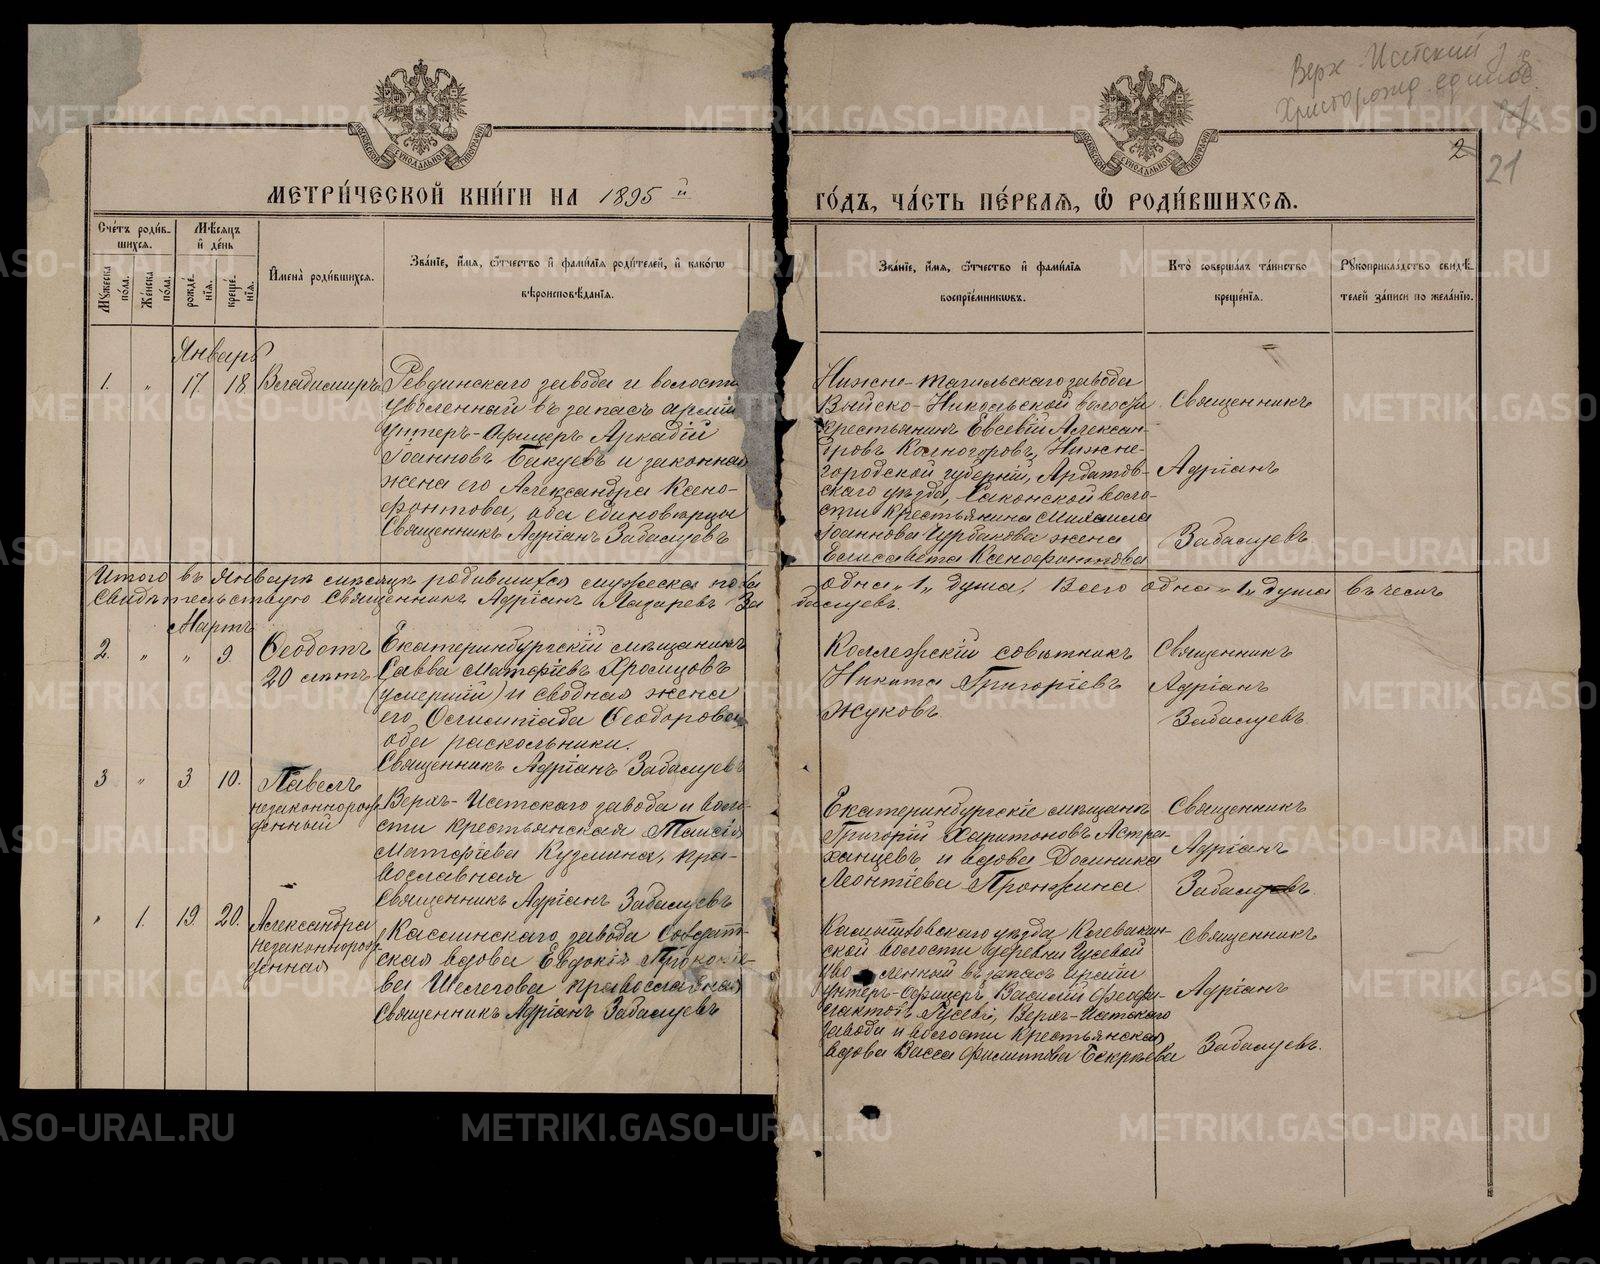 Верх-Исетский з.
Христорожд. единов.
2
21
МОСКОВСКОЙ СѴНОДАЛЬНОЙ ТИПОГРАФІИ
МОСКОВСКОЙ СѴНОДАЛЬНОЙ ТИПОГРАФІИ
МЕТРИ́ЧЕСКОЙ КНИ́ГИ НА 1895й ГО́ДЪ, ЧА́СТЬ ПЕ́РВАѦ, Ѡ РОДИ́ВШИХСѦ.
Сче́тъ роди́в-
шихся.
Му́жеска по́ла.
Же́нска по́ла.
Мѣ́сяцъ
и де́нь
рожде́нїя.
креще́нїя.
И҆мена̀ роди́вшихся.
Зва́нїе, и҆́мя, ѻ҆́тчество и҆ фами́лїя роди́телей, и҆ како́гѡ
вѣроисповѣ́данїя.
Зва́нїе, и҆́мя, ѻ҆́тчество и҆ фами́лїя
воспрїе́мникѡвъ.
Кто̀ соверша́лъ та́инство
креще́нїя.
Рꙋкоприкла́дство свидѣ́-
телей за́писи по жела́нїю.
Январь
1. " 17. 18. Владимиръ
Ревдинскаго завода и волости
уволенный въ запасъ арміи
унтеръ-офицеръ Аркадій
Іоанновъ Бакуевъ и законная
жена его Александра Ксено-
фонтова, оба единоверцы
Священникъ Адріанъ Забалуевъ
Нижне-тагильскаго завода
Выйско-Никольской волости
крестьянинъ Евсевій Алексан-
дровъ Колногоровъ, Ниже-
городской губерніи, Ардатов-
скаго уѣзда, Саконской воло-
сти крестьянина Михаила
Іоаннова Чурбакова жена
Елисавета Ксенофонтова
Священникъ
Адріанъ
Забалуевъ
Итого въ Январѣ мѣсяцѣ родившихся мужеска пола одна "1" душа, Всего одна "1" душа въ чемъ
свидѣтельствую Священникъ Адріанъ Лазаревъ Забалуевъ.
Мартъ
2. " " 9. Ѳеодотъ
20 лѣтъ
Екатеринбургскій мѣщанинъ
Савва Матѳіевъ Хромцовъ
(умершій) и сводная жена
его Олимпіада Ѳеодорова
оба раскольники.
Священникъ Адріанъ Забалуевъ
Коллежскій совѣтникъ
Никита Григоріевъ
Жуковъ.
Священникъ
Адріанъ
Забалуевъ
3 " 3 10. Павелъ
незаконнорож-
денный
Верхъ-Исетскаго завода и воло-
сти крестьянская Таисія
Матѳіева Кузмина, пра-
вославная
Священникъ Адріанъ Забалуевъ
Екатеринбургскіе мѣщане
Григорій Харитоновъ Астра-
ханцевъ и вдова Домника
Леонтіева Пронжина.
Священникъ
Адріанъ
Забалуевъ.
" 1. 19. 20. Александра
незаконнорож-
денная
Каслинскаго завода Солдат-
ская вдова Евдокія Прокопіе-
ва Шелегова православная
Священникъ Адріанъ Забалуевъ
Камышловскаго уѣзда
ской волости деревни Гусевой
уволенный въ запасъ арміи
унтеръ-офицеръ Василій
Гусевъ, Верхъ-Исетскаго
завода и волости крестьянская
вдова Васса Филиппова
Священникъ
Адріанъ
Забалуевъ.
METRIKI.GASO-URAL.RU